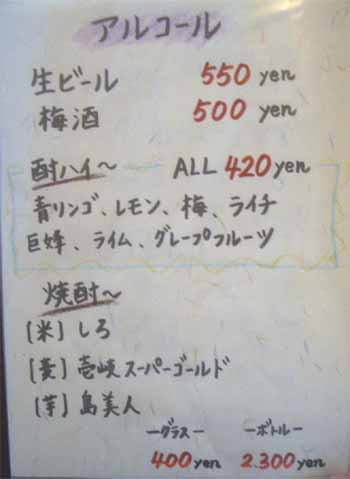 アルコール
生ビール 550 yen
梅酒 500 yen
酎ハイ〜 ALL 420yen
青リンゴ、レモン、梅、ライチ
巨蜂、ライム、グレープフルーツ
焼酎〜
[米] しろ
[麦] 壱岐スーパーゴールド
[芋] 島美人
ーグラスー ーボトルー
400yen 2.300yen